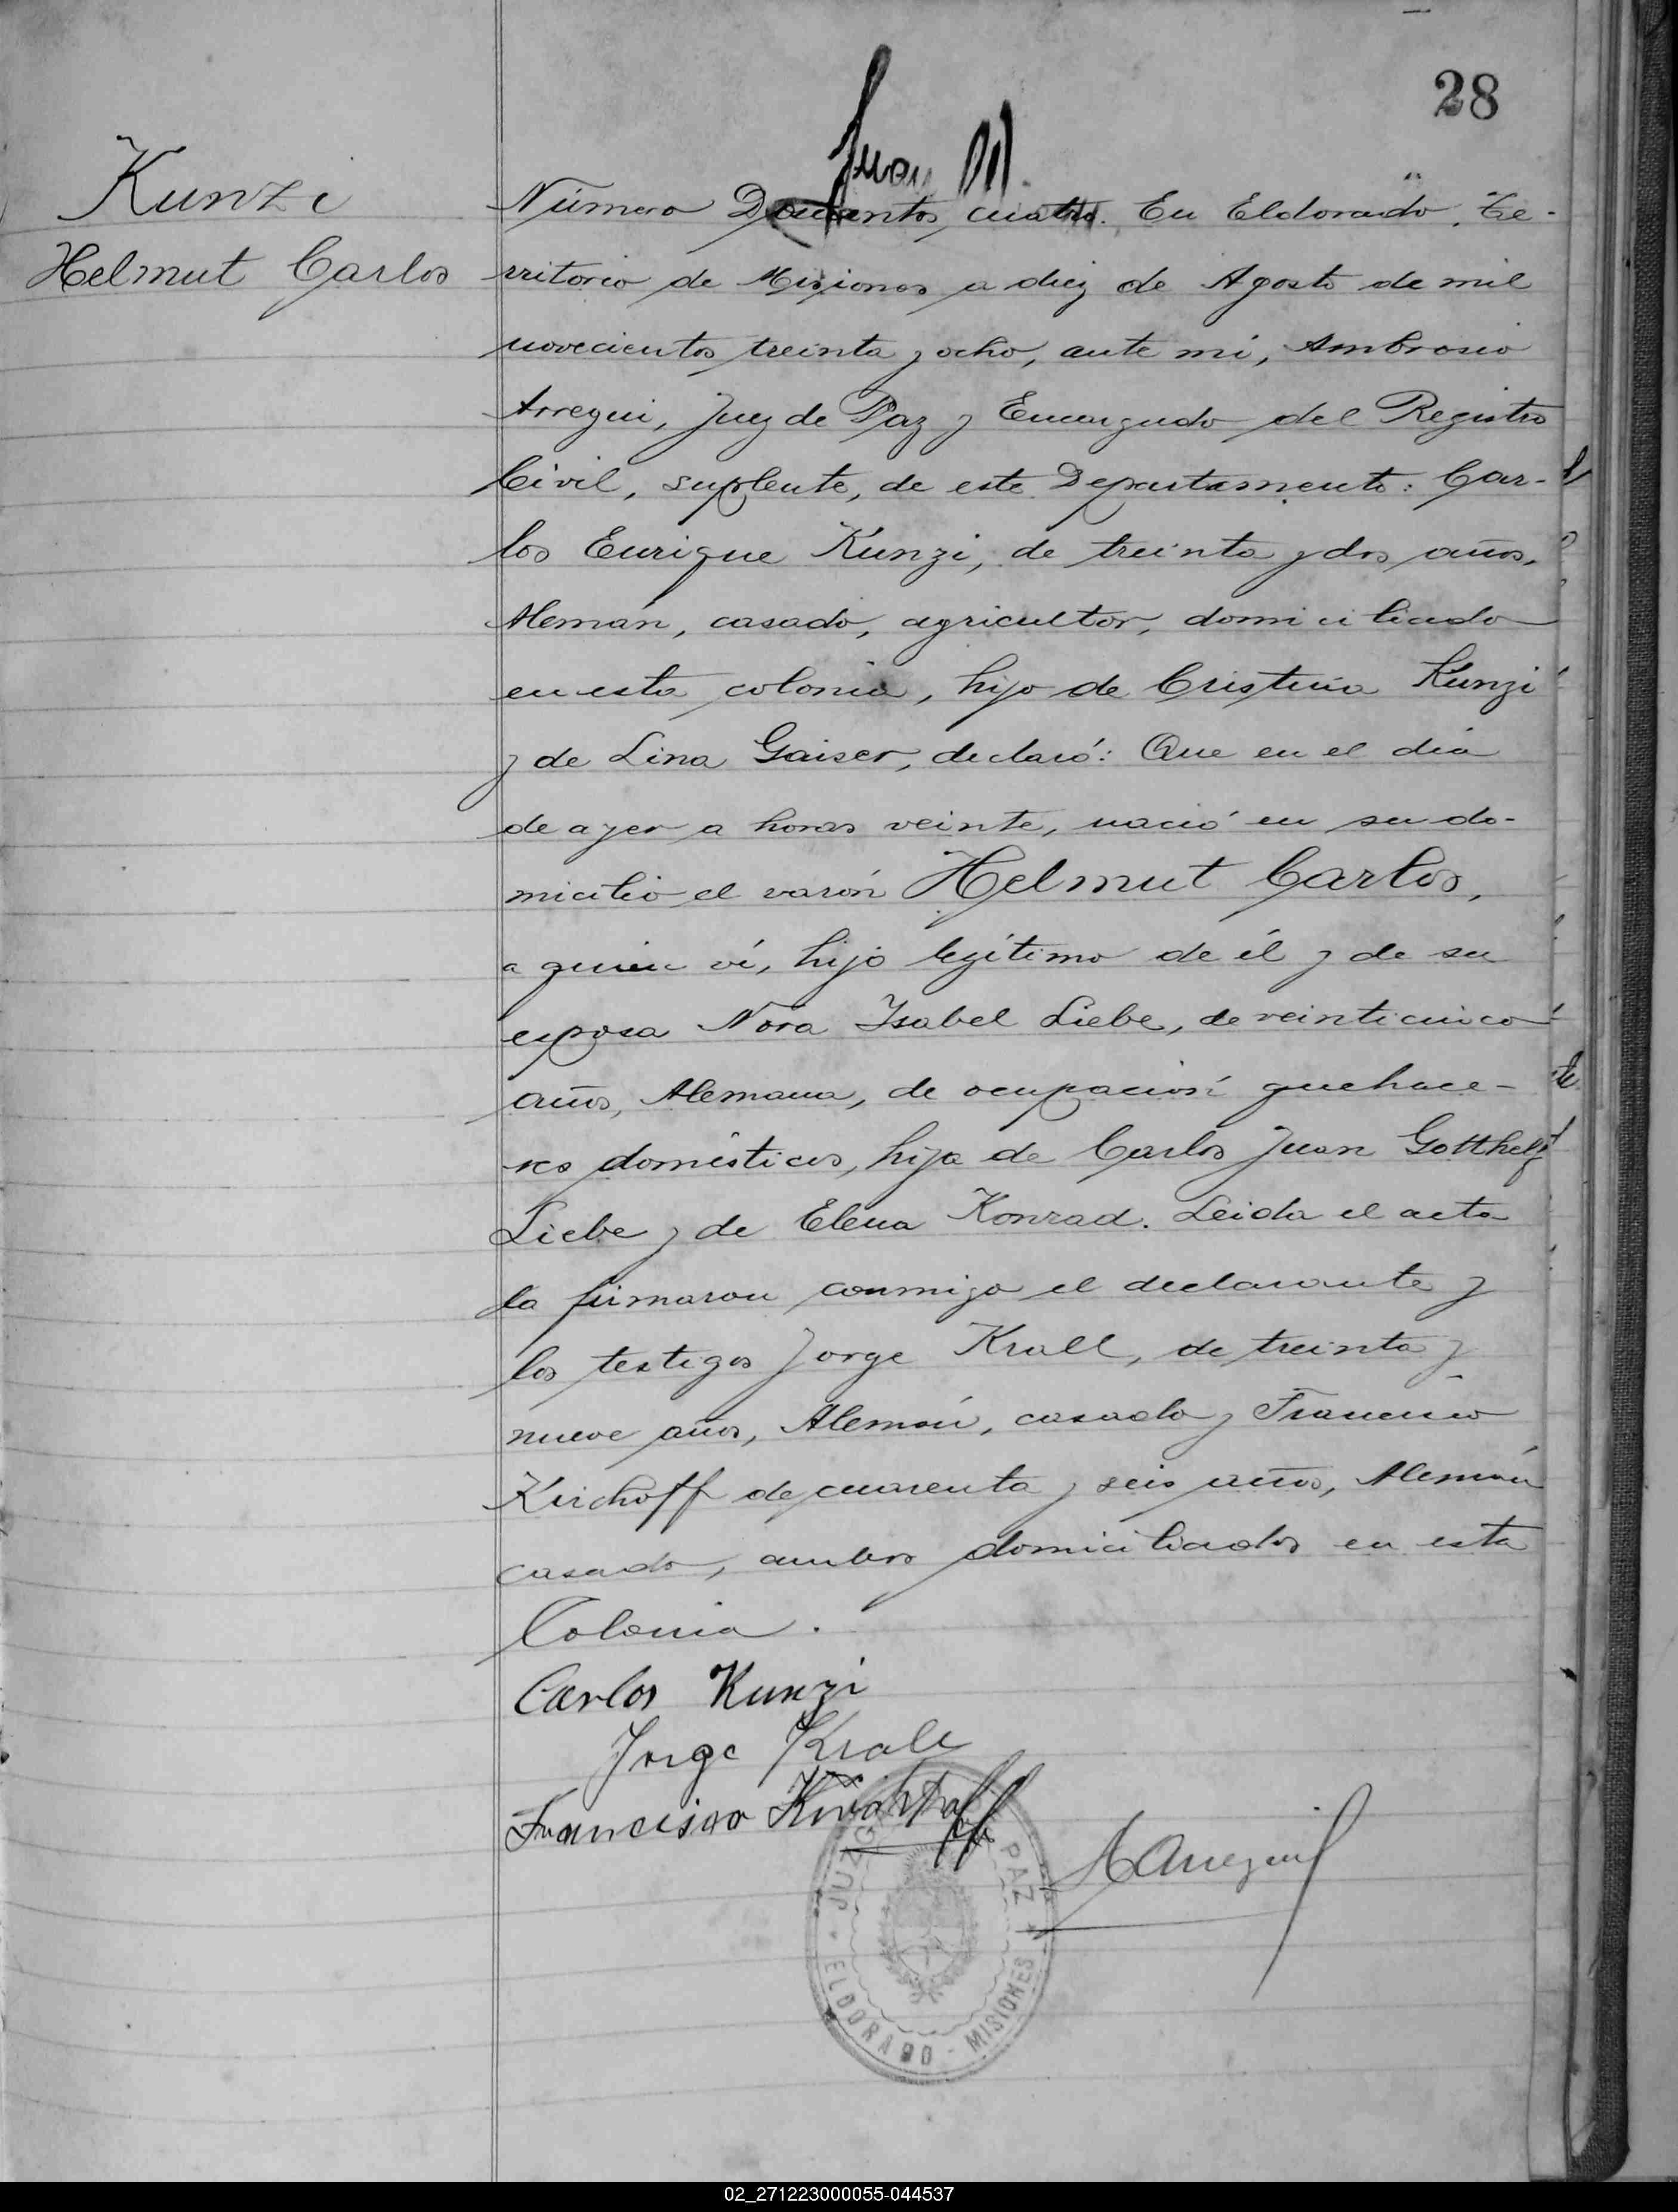 28
Juan
Kunzi
Helmut Carlos
Número Doscientos cuatro. En Eldorado, Te-
rritorio de Misiones a diez de Agosto de mil
novecientos treinta y ocho, ante mi, Ambrosio
Arregui, Juez de Paz y Encargado del Registro
Civil, suplente, de este Departamento: Car-
los Enrique Kunzi, de treinta y dos años,
Alemán, casado, agricultor, domiciliado
en esta colonia, hijo de Cristina Kunzi
y de Lina Gaiser, declaró: Que en el día
de ayer a horas veinte, nació en su do-
micilio el varón Helmut Carlos,
a quien ví, hijo legítimo de él y de su
esposa Nora Isabel Liebe, de veinticinco
años, Alemana, de ocupación quehace-
res domésticos, hija de Carlos Juan Gotthelf
Liebe y de Elena Konrad. Leida el acta
la firmaron conmigo el declarante y
los testigos Jorge Krall, de treinta y
nueve años, Alemán, casado y Francisco
Kirchoff de cuarenta y seis años, Alemán
casado, ambos domiciliados en esta
Colonia.
Carlos Kunzi
Jorge Krall
Francisco
A Arregui
JUZGADO DE PAZ
ELDORADO - MISIONES
02_271223000055-044537